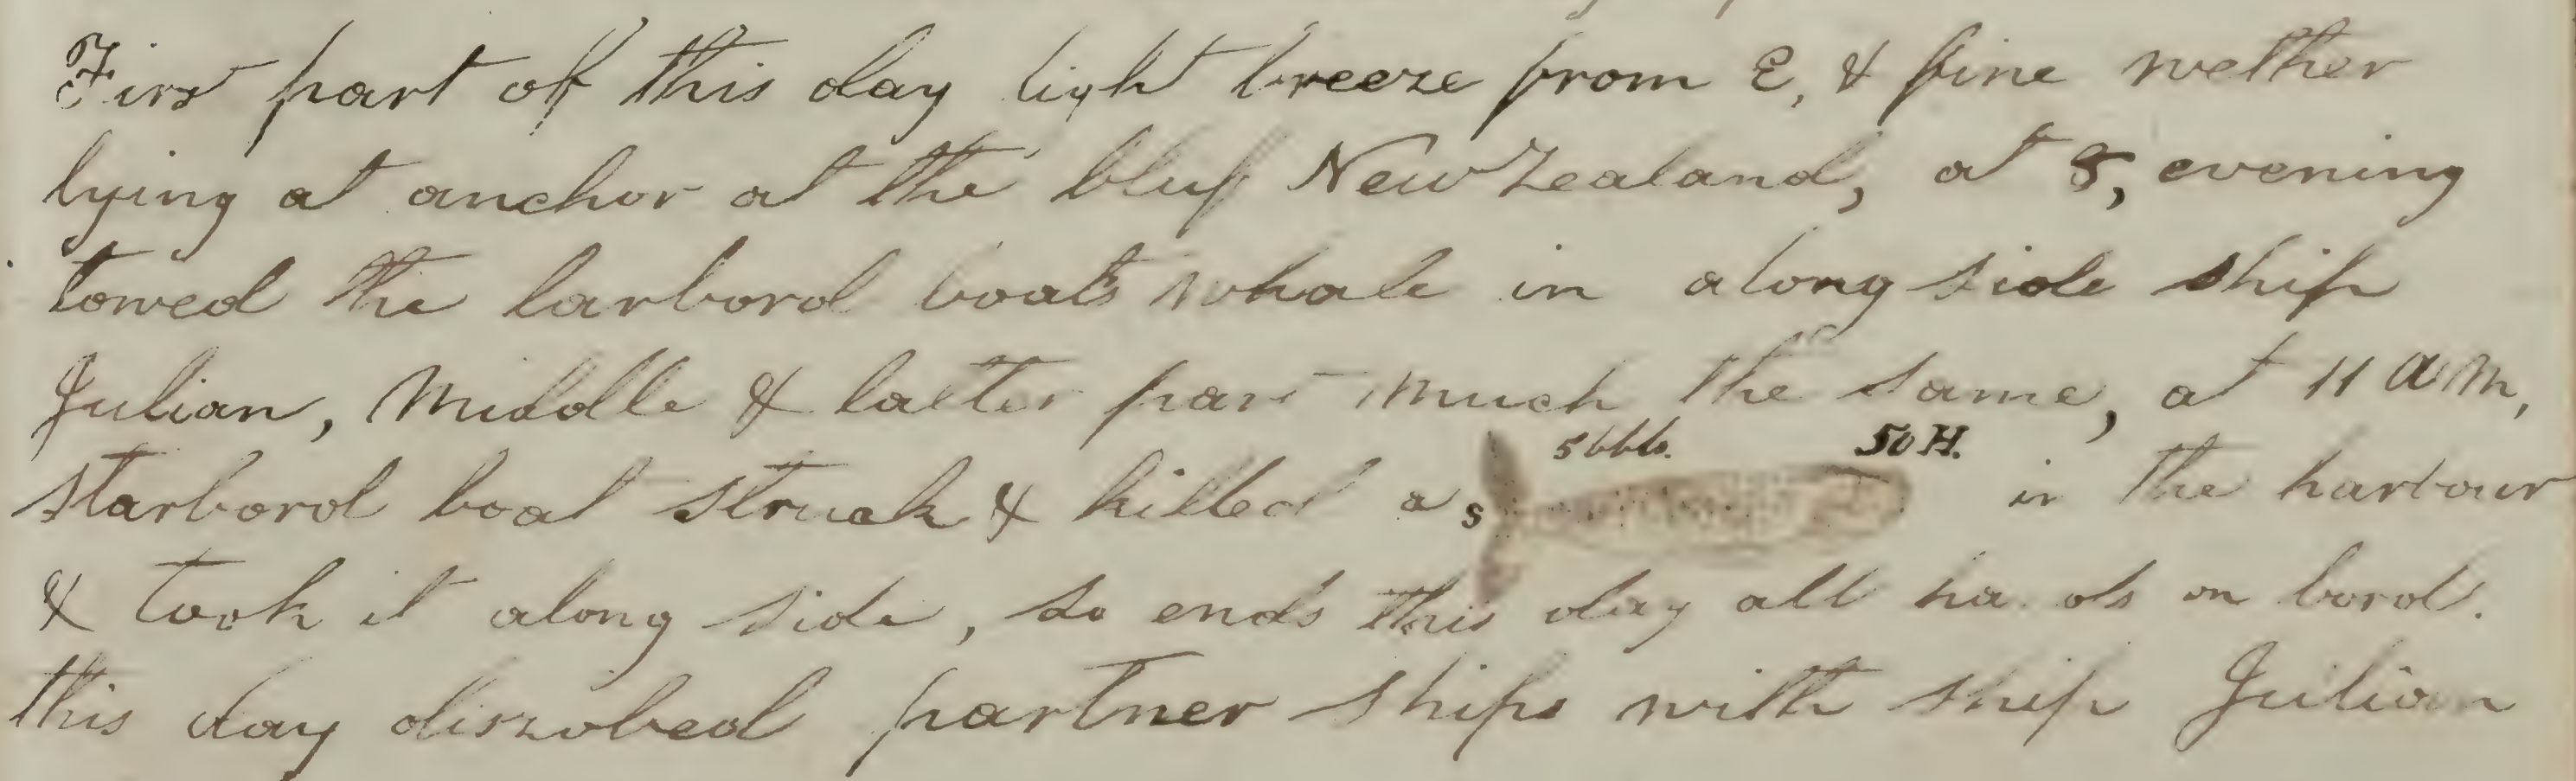 Firs part of this day light breeze from E, & fine wether
lying at anchor at the bluf New Zealand, at 8, evening
towed the larbord boats whale in along side ship
Julian, Middle & latter part much the same, at 11 am,
5 bbls. 50 H.
starbord boat struck & killed a s in the harbour
& took it along side, so ends this day all hands on bord.
this day dissolved partner ships with ship Julian